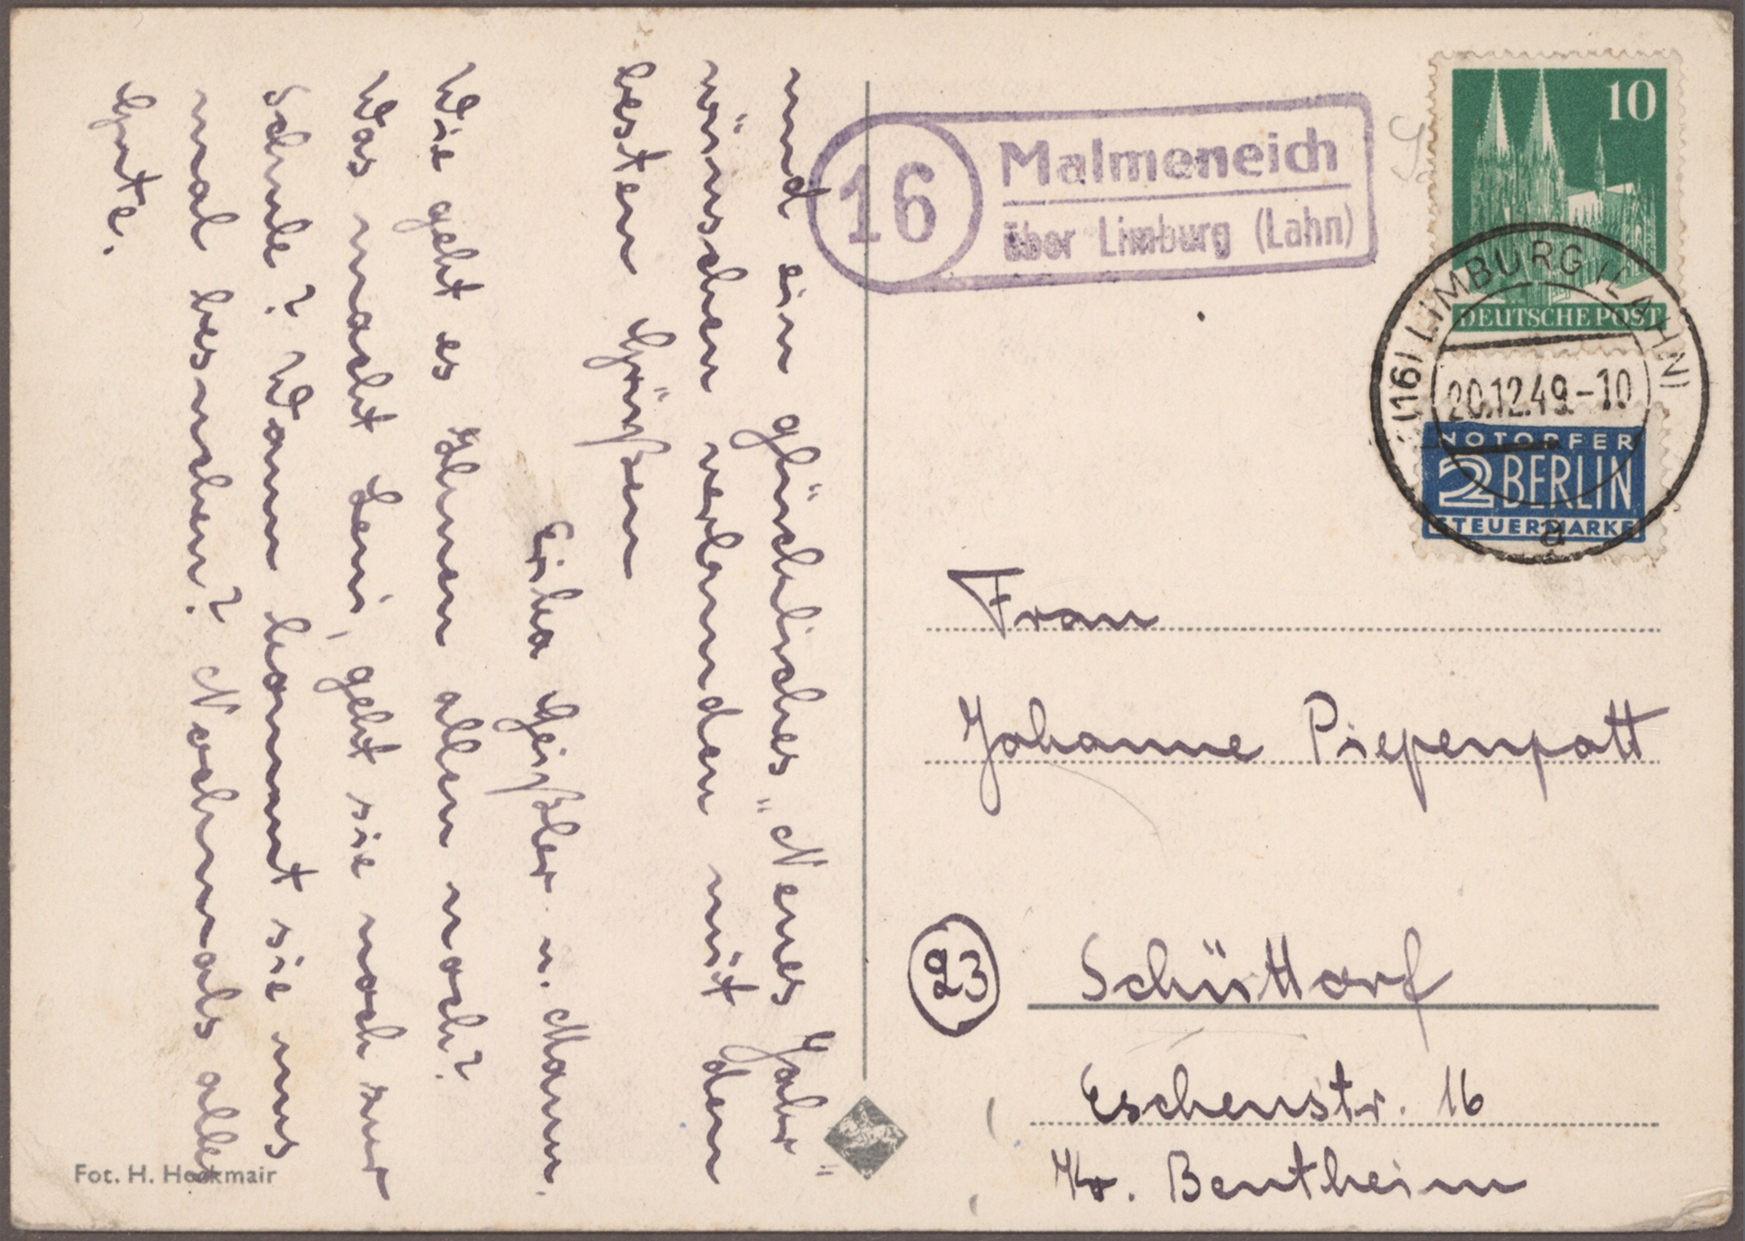 und ein glückliches „Neues Jahr"
wünschen verbunden mit den
besten Grüßen
Erika Geißler u. Mann.
Wie geht es Ihnen allen noch?
Was macht Leni, geht sie noch zur
Schule? Wann kommt sie uns
mal besuchen? Nochmals alles
Gute.
Fot. H. Heckmair
16
Malmeneich
über Limburg (Lahn)
10
DEUTSCHE POST
(16) LIMBURG (LAHN)
20.12.49.-10
a
NOTOPFER
2 BERLIN
STEUERMARKE
Frau
Johanne Piepenpott
23 Schüttorf
Eschenstr. 16
Kr. Bentheim